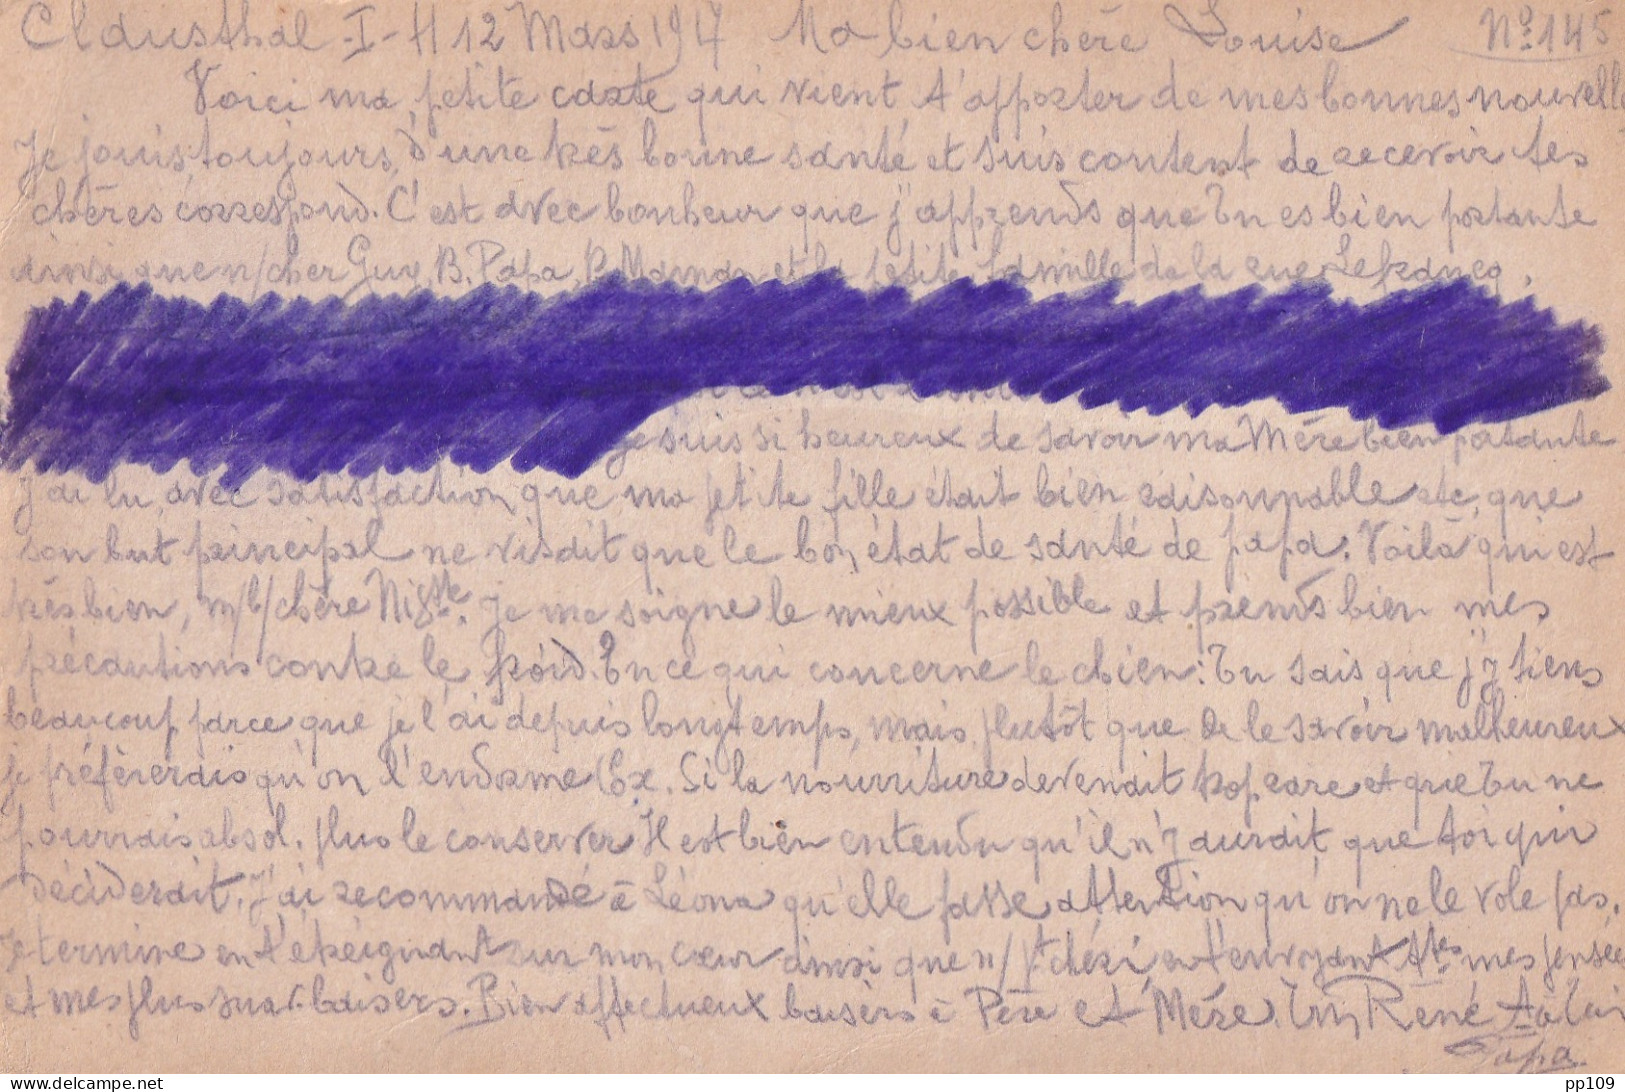 Clausthal-I-H 12 Mars 1917 Ma bien chère Louise N° 145
Voici ma petite carte qui vient t'apporter de mes bonnes nouvelles
Je jouis toujours d'une très bonne santé et suis content de recevoir tes
chères correspond. C'est avec bonheur que j'apprends que Tu es bien portante
ainsi que n/cher Guy, B. Papa, B. Maman et la petite famille de la rue Lefrancq.
je suis si heureux de savoir ma Mère bien portante
j'ai lu avec satisfaction que ma petite fille était bien raisonnable etc, que
son but principal ne visait que le bon état de santé de papa. Voilà qui est
très bien, m/b/chère. Je me soigne le mieux possible et prends bien mes
précautions contre le froid. En ce qui concerne le chien: Tu sais que j'y tiens
beaucoup parce que je l'ai depuis longtemps, mais plutôt que de le savoir malheureux
je préfèrerais qu'on l'endorme (Ex. Si la nourriture devenait trop rare et que Tu ne
pourrais absol. plus le conserver Il est bien entendu qu'il n'y aurait que toi qui
déciderait. J'ai recommandé à Léona qu'elle fasse attention qu'on ne le vole pas.
Je termine en t'étreignant sur mon cœur ainsi que n/pt chéri, en t'envoyant ttes mes pensées
et mes plus suav. baisers. Bien affectueux baisers à Père et Mère. Ton René A à Toi
Papa.
pp109